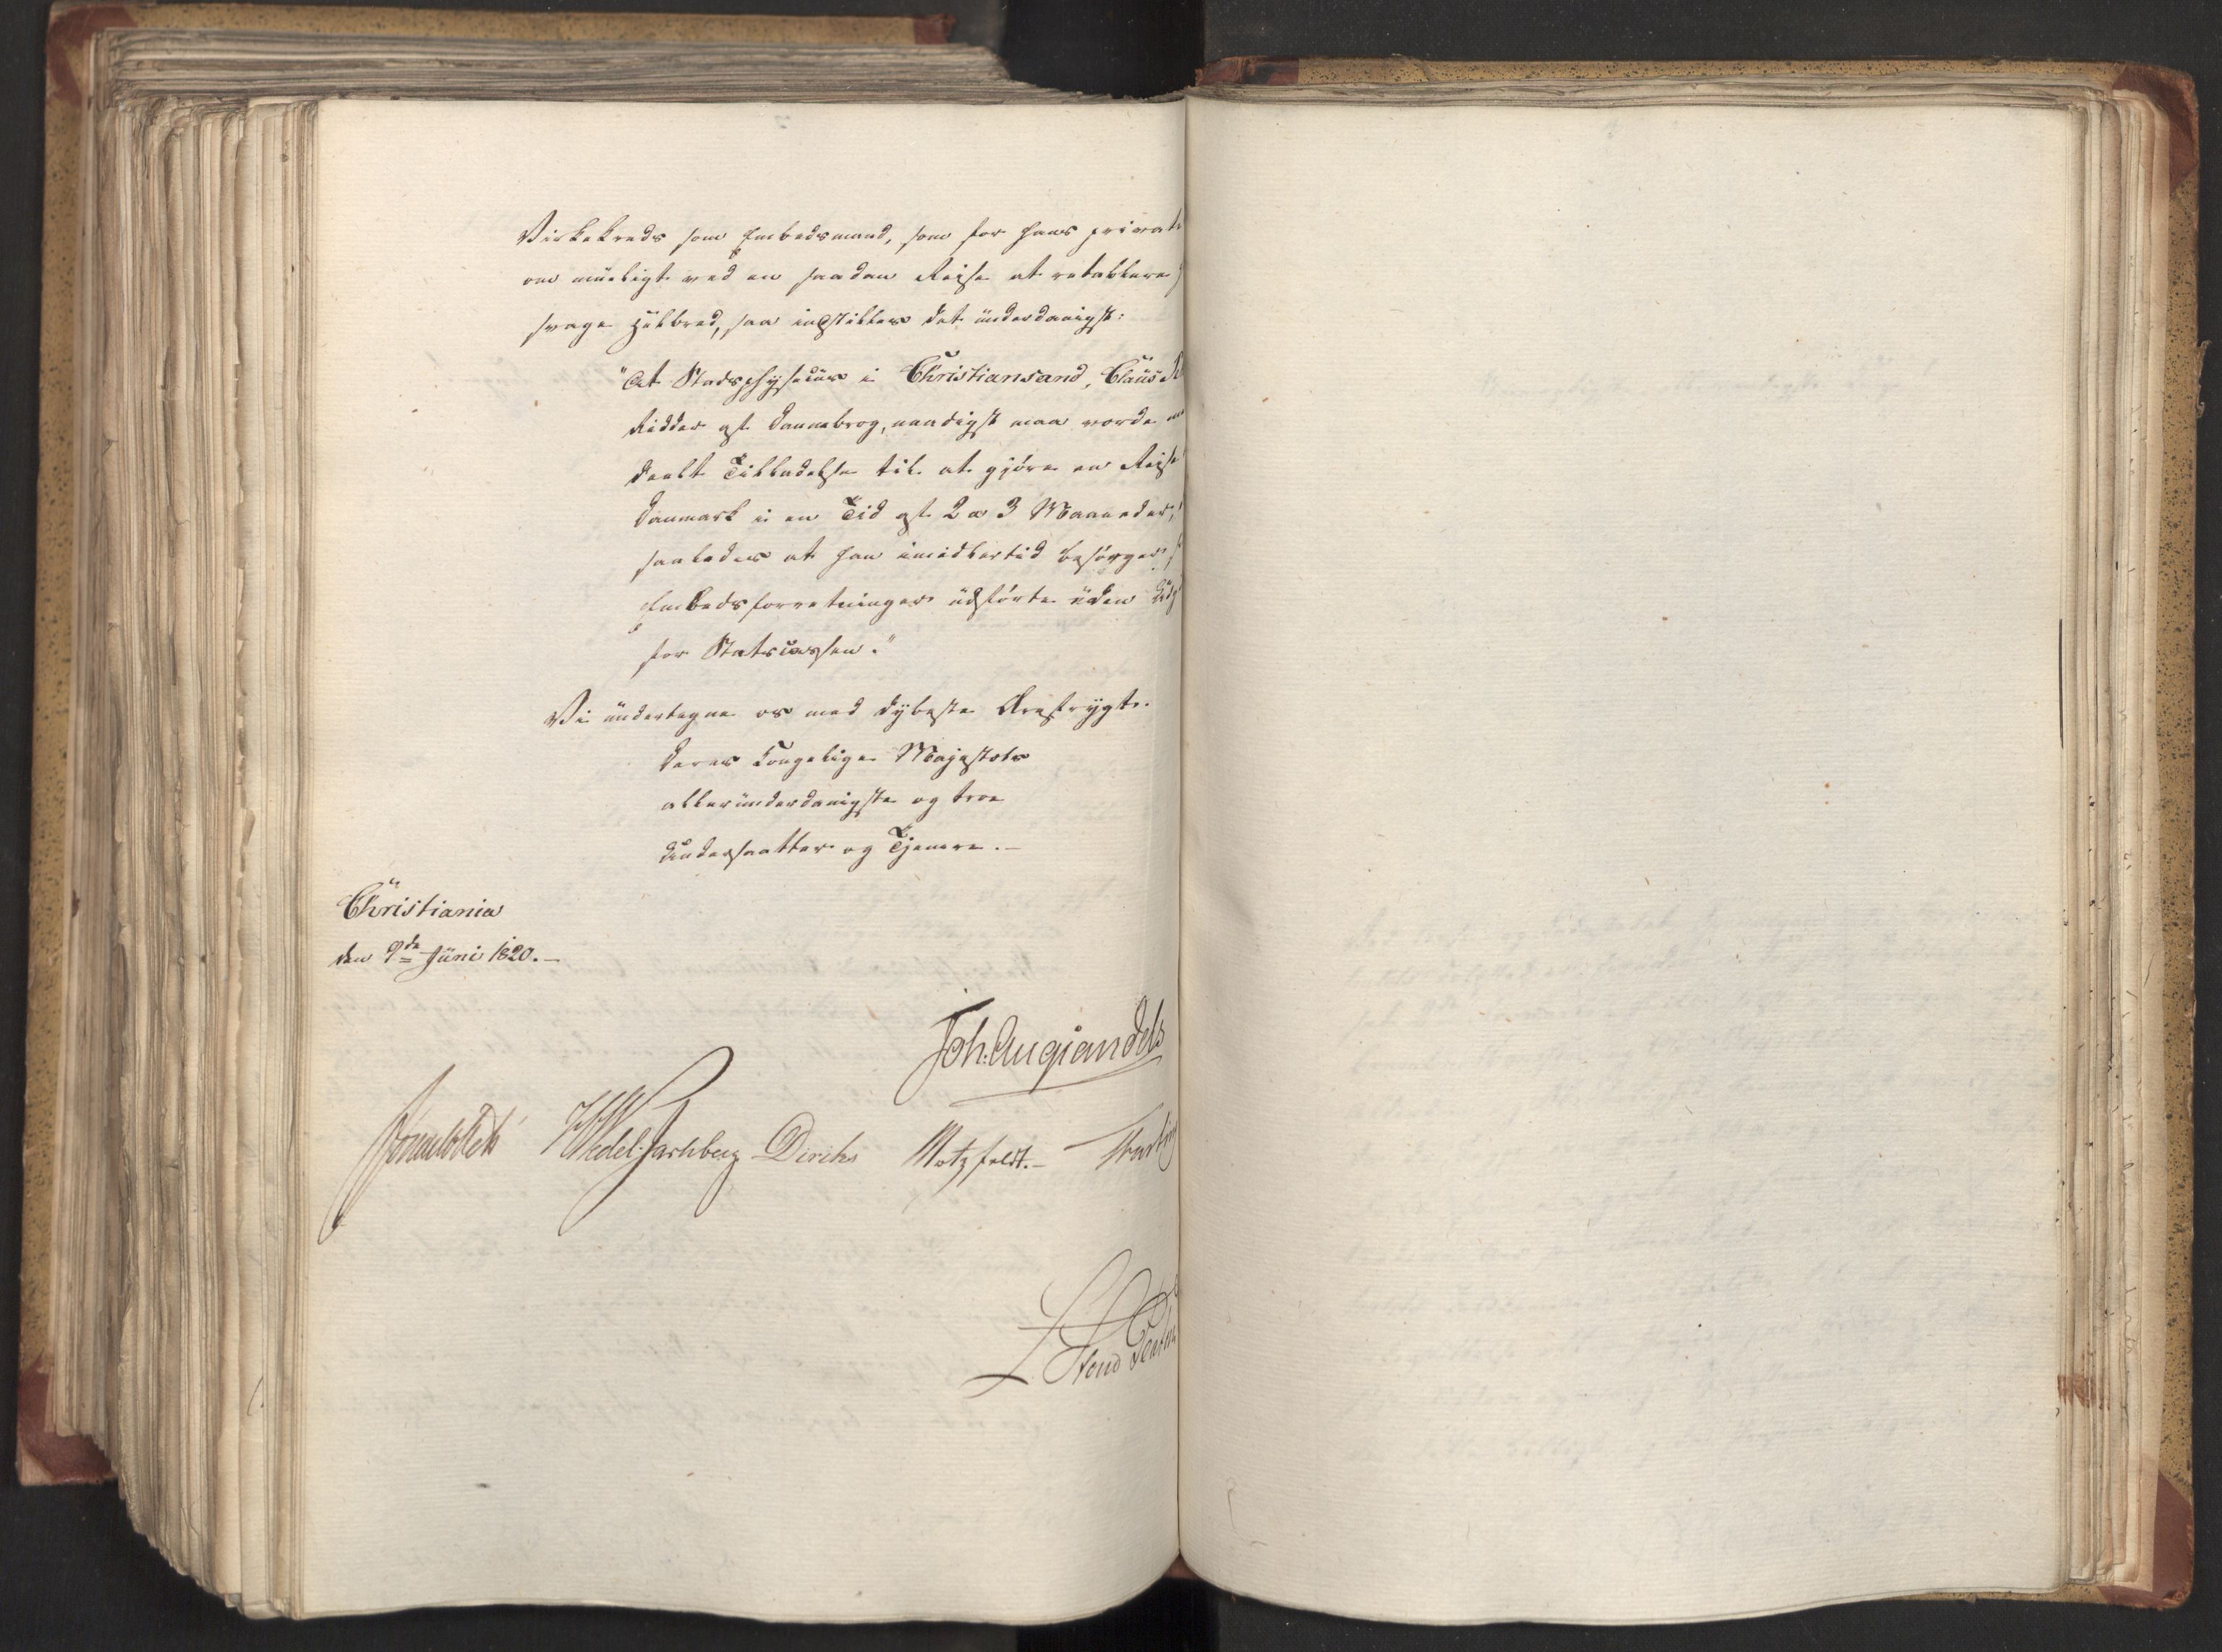 Virkekreds som Embedsmand, som for hans privat
om mueligt ved en saadan Reise at retablere
svage Helbred, saa indstilles det underdanigst:
"At Stadsphysicus i Christiansand, Claus
Ridder af Dannebrog, naadigst maa vorde
deelt Tilladelse til at gjöre en Reise
Danmark i en Tid af 2 a 3 Maaneder,
saaledes at han imidlertid besörger
Embedsforretninger udförte uden Udg
for Statscassen."
Vi undertegne os med dybeste Ærefrygt.
Deres Kongelige Majestæts
allerunderdanigste og troe
Undersaatter og Tjenere.—
Christiania
den 9de Juni 1820.—
Joh. Aug Sandels
Sommelldt HWedel-Jarlsberg Diriks Motzfeldt.—
L. Stoud Platou